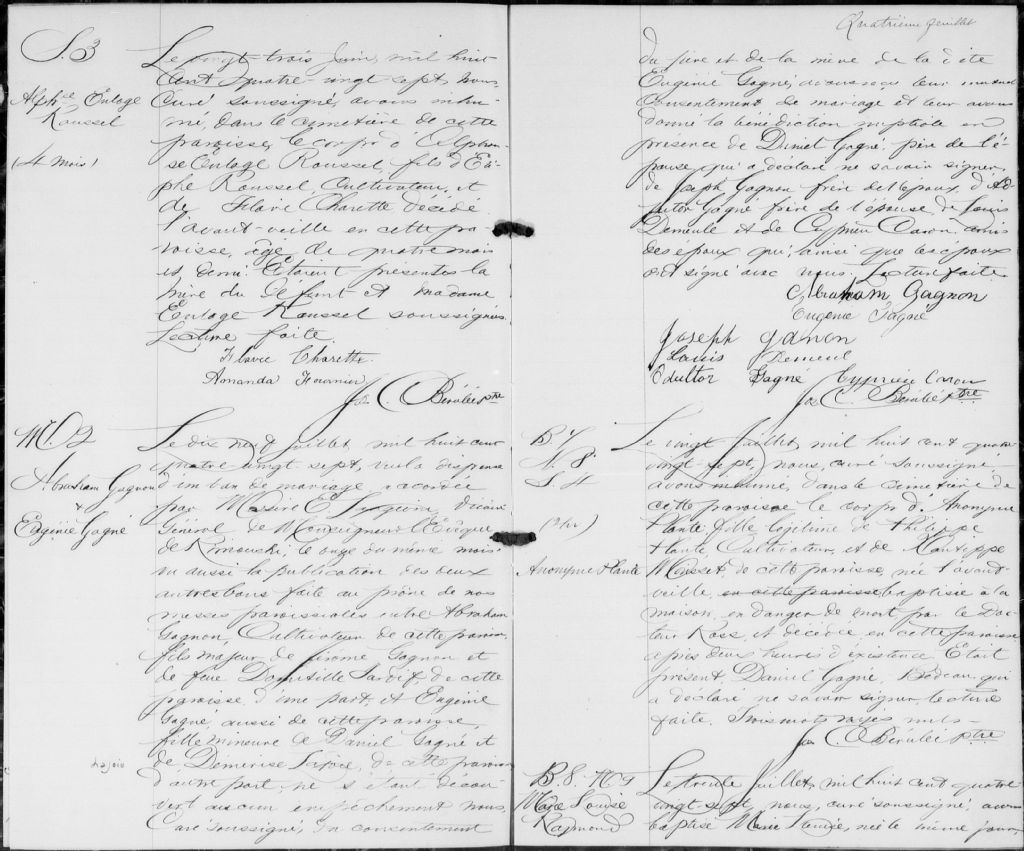 S. 3
Alph.se Euloge
Roussel
(4 mois)
Le vingt-trois Juin, mil huit
cent quatre-vingt sept, nous
Curé soussigné, avons inhu-
mé, dans le cimetière de cette
paroisse, le corps d'Alphon-
se Euloge Roussel, fils d'Eli-
phe Roussel, Cultivateur, et
de Flavie Charette décédé
l'avant-veille en cette pa-
roisse, âgé de quatre mois
et demi. Étaient présentes la
mère du défunt et madame
Euloge Roussel soussignées.
Lecture faite.
Flavie Charette
Amanda Fournier
Jos C. Bérubé ptre
M. 2
Abraham Gagnon
&
Eugénie Gagné
Le dix neuf Juillet, mil huit cent
quatre vingt-sept, vu la dispense
d'un ban de mariage accordée
par Messire E. Vicaire
Général de Monseigneur l'Évêque
de Rimouski, le onze du même mois
vu aussi la publication des deux
autres bans faite au prône de nos
messes paroissiales entre Abraham
Gagnon, Cultivateur de cette paroisse,
fils majeur de Jérôme Gagnon et
de feue Domitille Sardif de cette
paroisse, d'une part, et Eugénie
Gagné aussi de cette paroisse,
fille mineure de Daniel Gagné et
de Démerise Lajoie, de cette paroisse
d'autre part, ne s'étant décou-
vert aucun empêchement nous,
Curé soussigné, du consentement
Lajoie
Quatrième feuillet
du père et de la mère de la dite
Eugénie Gagné, avons reçu leur mutuel
Consentement de mariage et leur avons
donné la bénédiction nuptiale en
présence de Daniel Gagné, père de l'é-
pouse, qui a déclaré ne savoir signer,
de Joseph Gagnon frère de l'époux, d'Ad-
jutor Gagné frère de l'épouse, de Louis
Demeule et de Cyprien Caron, amis
des époux qui, ainsi que les époux
ont signé avec nous. Lecture faite.
Abraham Gagnon
Eugénie Gagné
Joseph ganon
Louis Demeul
Odultor Gagné Cyprien Caron
Jos C. Bérubé ptre
B. 7
N. 8
S. 4
(2 hrs)
Anonyme Plante
Le vingt Juillet, mil huit cent quatre
vingt-sept, nous, curé soussigné
avons inhumé, dans le cimetière de
cette paroisse le corps d'Anonyme
Plante, fille légitime de Philippe
Plante, Cultivateur, et de Xantippe
Mousset, de cette paroisse, née l'avant-
veille, en cette paroisse baptisée à la
maison, en danger de mort par le Doc-
teur Ross, et décédée en cette paroisse
après deux heures d'existence. Était
présent, Daniel Gagné, Bedeau, qui
a déclaré ne savoir signer. Lecture
faite. Trois mots rayés nuls.
Jos C. Bérubé ptre
B. 8.
Marie Louise
Raymond
Le trente Juillet, mil huit cent quatre
vingt sept, nous, curé soussigné, avons
baptisé Marie Louise, née le même jour,